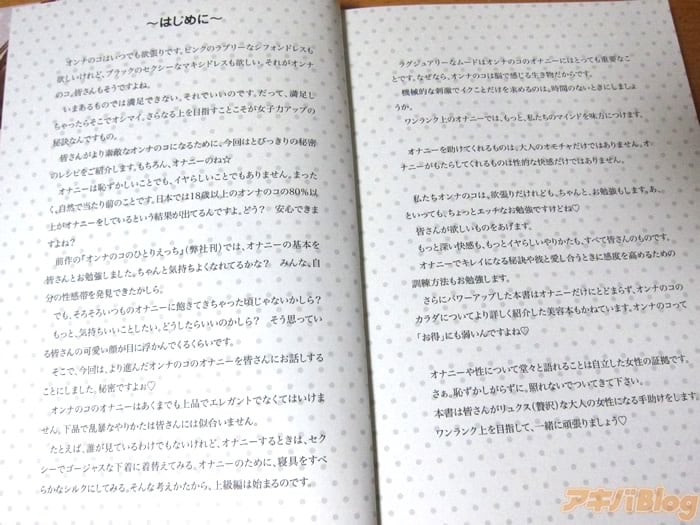 ～はじめに～
オンナのコはいつでも欲張りです。ピンクのラブリーなシフォンドレスも
欲しいけれど、ブラックのセクシーなマキシドレスも欲しい。それがオンナ
のコ。皆さんもそうですよね。
いまあるものでは満足できない。それでいいのです。だって、満足し
ちゃったらそこでオシマイ。さらなる上を目指すことこそが女子力アップの
秘訣なんですもの。
皆さんがより素敵なオンナのコになるために、今回はとびっきりの秘密
のレシピをご紹介します。もちろん、オナニーのね☆
オナニーは恥ずかしいことでも、イヤらしいことでもありません。まった
く、自然で当たり前のことです。日本では18歳以上のオンナのコの80％以
上がオナニーをしているという結果が出てるんですよ。どう？　安心できま
すよね？
前作の『オンナのコのひとりえっち』(弊社刊)では、オナニーの基本を
皆さんとお勉強しました。ちゃんと気持ちよくなれてるかな？　みんな。自
分の性感帯を発見できたかしら。
でも、そろそろいつものオナニーに飽きてきちゃった頃じゃないかしら？
もっと、気持ちいいことしたい。どうしたらいいのかしら？　そう思ってい
る皆さんの可愛い顔が目に浮かんでくるくらいです。
そこで、今回は、より進んだオンナのコのオナニーを皆さんにお話しする
ことにしました。秘密ですよ♡
オンナのコのオナニーはあくまでも上品でエレガントでなくてはいけま
せん。下品で乱暴なやりかたは皆さんには似合いません。
たとえば、誰が見ているわけでもないけれど、オナニーするときは、セク
シーでゴージャスな下着に着替えてみる。オナニーのために、寝具をすべ
らかなシルクにしてみる。そんな考えかたから、上級編は始まるのです。
ラグジュアリーなムードはオンナのコのオナニーにはとっても重要なこ
とです。なぜなら、オンナのコは脳で感じる生き物だからです。
機械的な刺激でイクことだけを求めるのは。時間のないときにしましょ
うか。
ワンランク上のオナニーでは、もっと、私たちのマインドを味方につけます。
オナニーを助けてくれるものは。大人のオモチャだけではありません。オ
ナニーがもたらしてくれるものは性的な快感だけではありません。
私たちオンナのコは。欲張りだけれども、ちゃんと、お勉強もします。あ、
といっても、ちょっとエッチなお勉強ですけどね♡
皆さんが欲しいものをあげます。
もっと深い快感も、もっとイヤらしいやりかたも、すべて皆さんのものです。
オナニーでキレイになる秘訣や彼と愛し合うときに感度を高めるための
訓練方法もお勉強します。
さらにパワーアップした本書はオナニーだけにとどまらず、オンナのコの
カラダについてより詳しく紹介した美容本もかねています。オンナのコって
「お得」にも弱いんですよね♡
オナニーや性について堂々と語れることは自立した女性の証拠です。
さぁ。恥ずかしがらずに。照れないでついてきて下さい。
本書は皆さんがリュクス(贅沢)な大人の女性になる手助けをします。
ワンランク上を目指して、一緒に頑張りましょう♡
アキバBlog